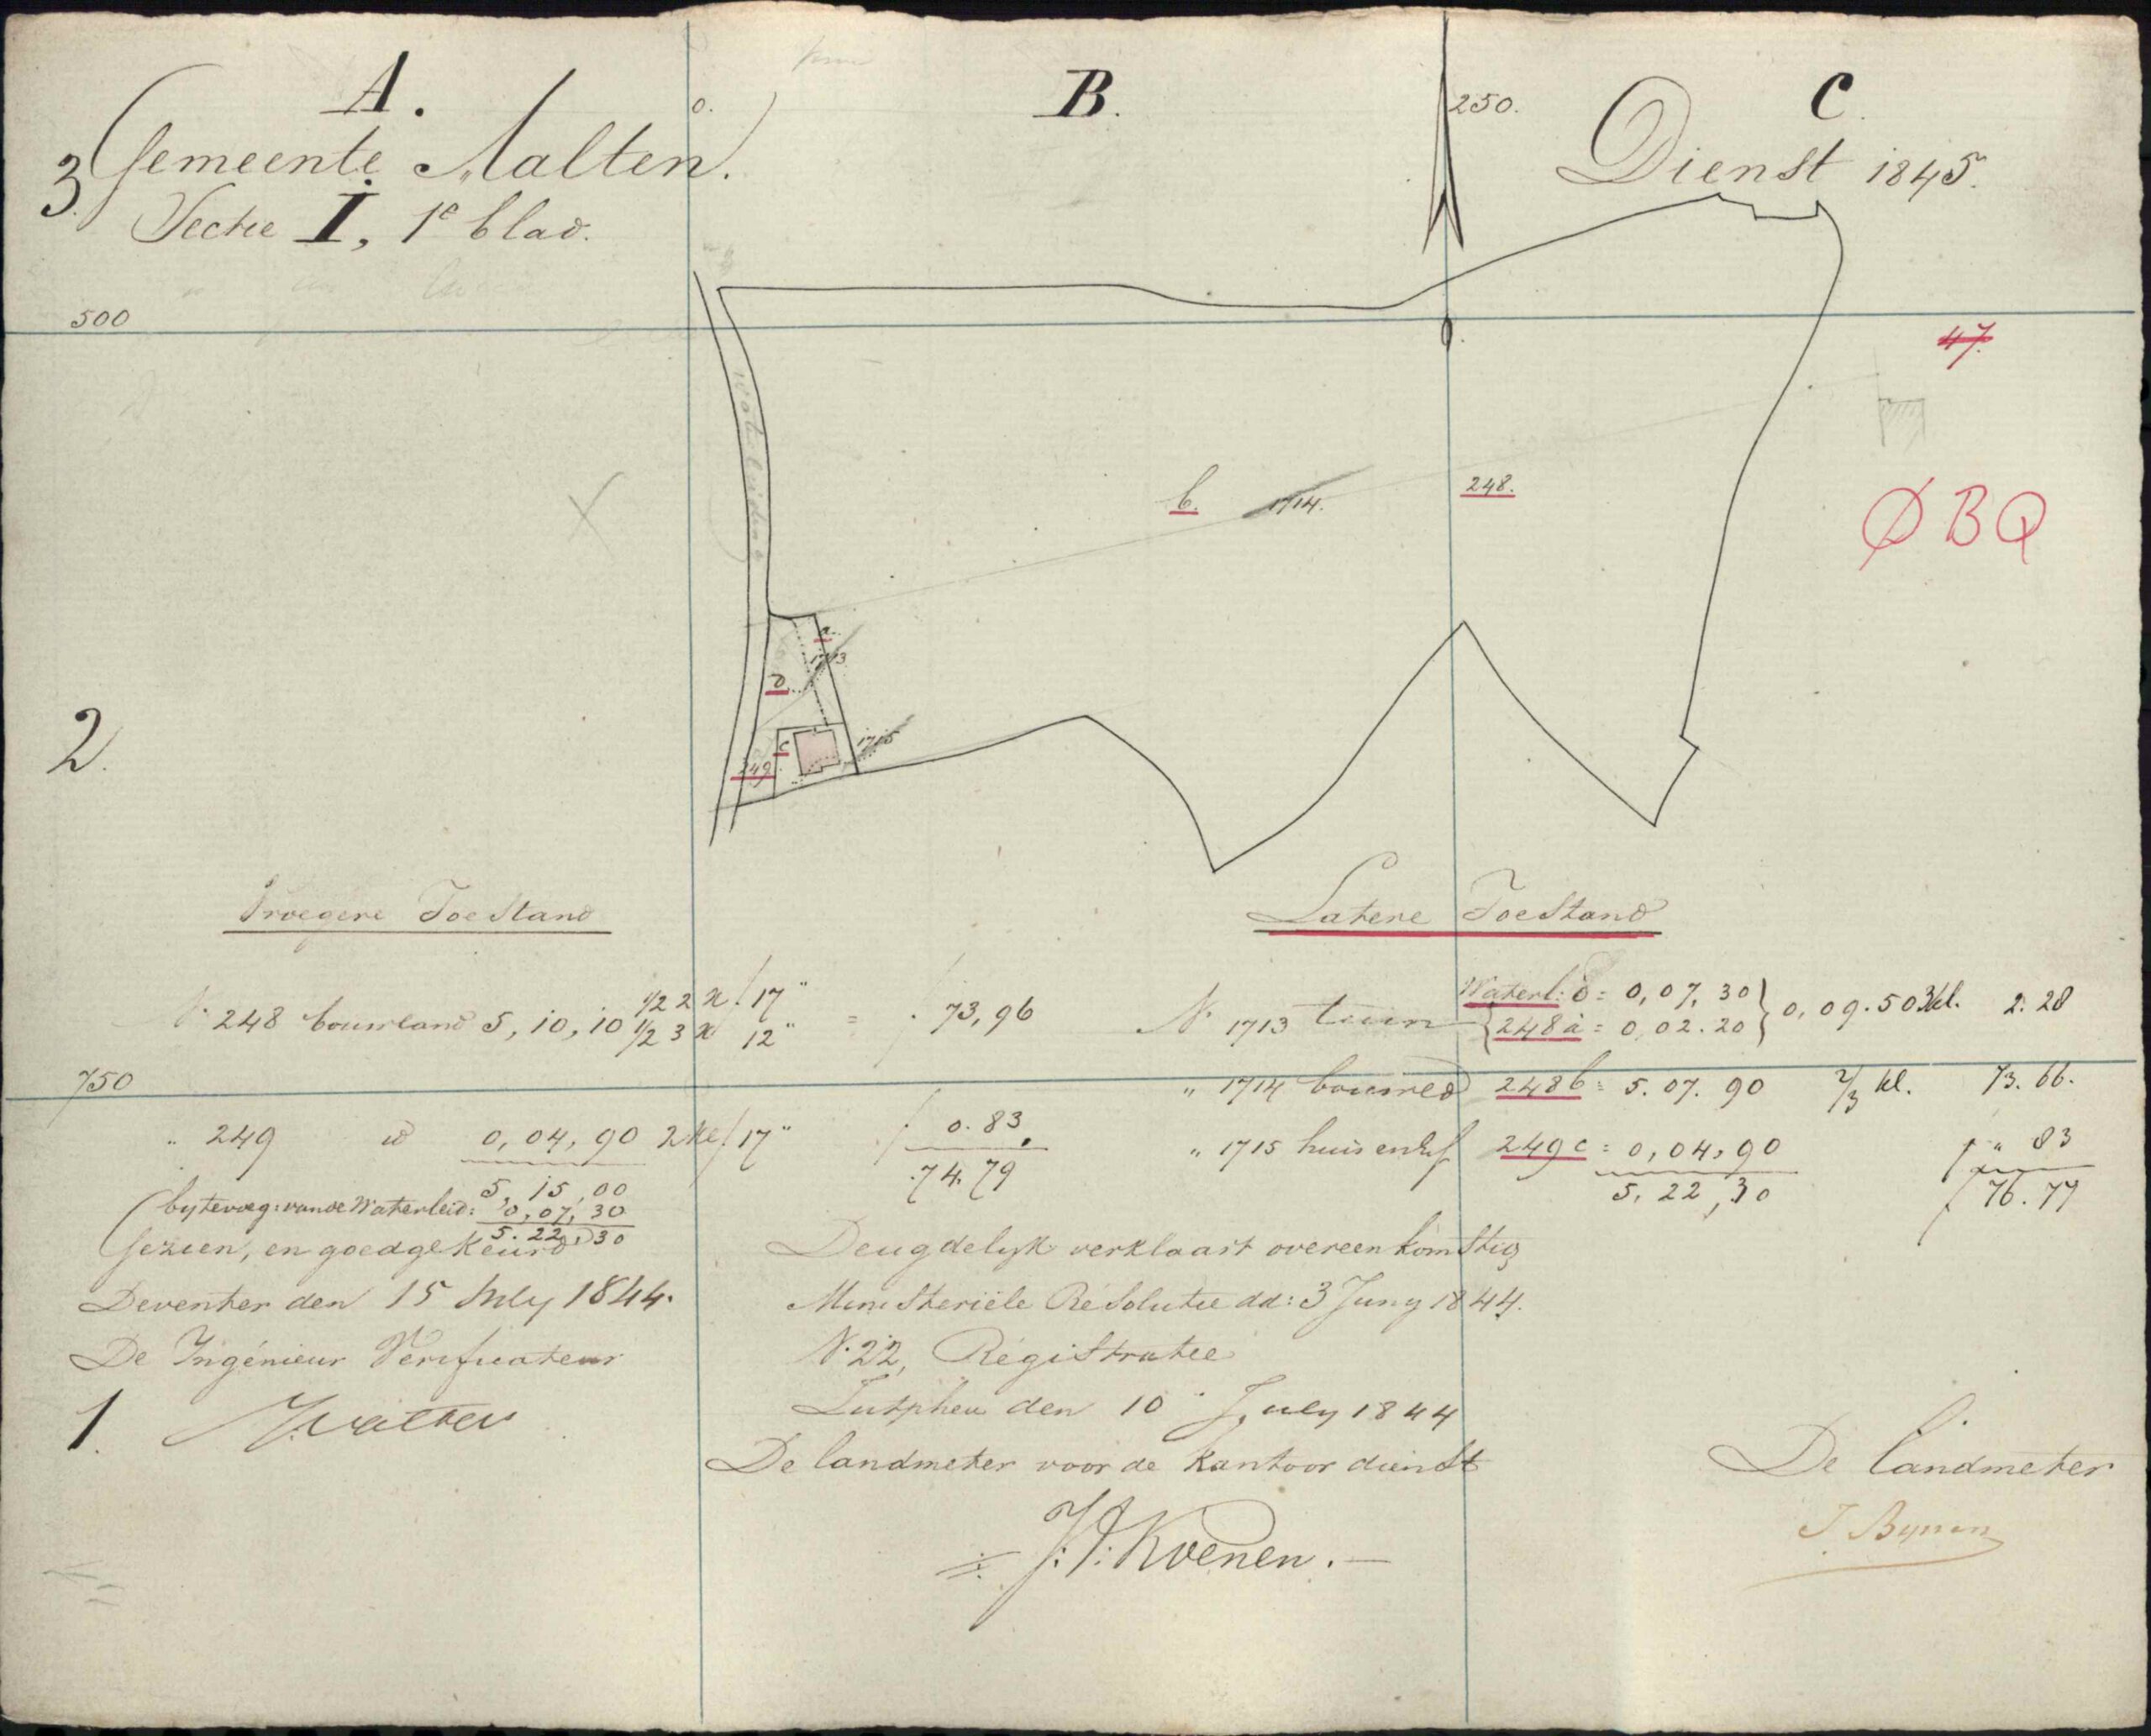 A.
B.
C.
0.
250.
3.
Gemeente Aalten.
Sectie I, 1e blad.
Dienst 1845.
500
47.
ØBQ
b.
1714.
248.
a.
1713
d.
c
1715
249.
2.
Vroegere Toestand
Latere Toestand
N. 248 bouwland 5,10,10 1/2 2 kl f 17" = . 73,96
1/2 3 kl 12"
N. 1713 tuin Waterl: d = 0,07,30 } 0,09.50 3 kl. 2.28
248 a = 0,02.20
750
" 1714 bouwld 248b = 5.07.90 2/3 kl. 73.66.
" 249 id 0,04,90 2 kl f 17" f 0.83.
" 1715 huis en erf 249c = 0,04,90 f " 83
74.79
5.22,30 f 76.77
5,15,00
bytevoeg: van de Waterleid: 0,07,30
5.22,30
Gezien, en goedgekeurd
Deventer den 15 July 1844.
De Ingénieur Verificateur
1.
Deugdelyk verklaart overeenkomstig
Ministeriële Résolutie dd: 3 Juny 1844.
N. 22, Régistratie
Zutphen den 10 July 1844
De landmeter voor de kantoor dienst
Koenen.
De Landmeter